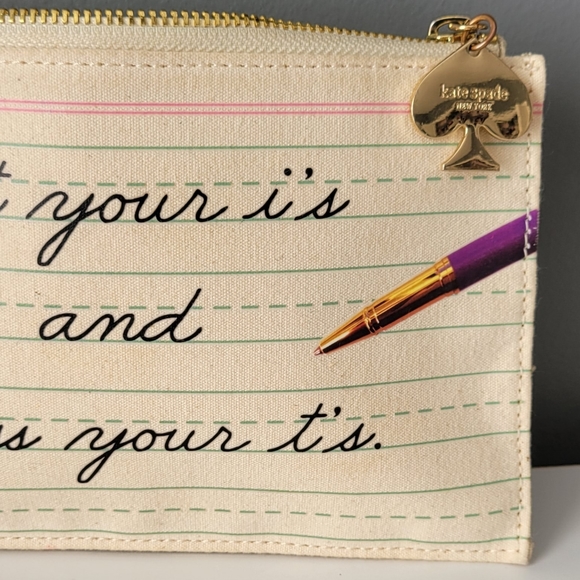 your i's
and
your t's.
kate spade
NEW YORK